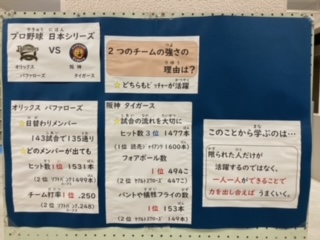 プロ野球 日本シリーズ
VS
オリックス
バファローズ
阪神
タイガース
2つのチームの強さの
理由は?
☆どちらもピッチャーが活躍
オリックス バファローズ
☆日替わりメンバー
143試合で135通り
☆どのメンバーが出ても
ヒット数 1位 1531本
チーム打率 1位 .250
阪神 タイガース
☆試合の流れを大切に
ヒット数 3位 1477本
フォアボール数
1位 494こ
バントや犠牲フライの数
1位 153本
このことから学ぶのは…
限られた人だけが
活躍するのではなく、
一人一人ができることで
力を出し合えば うまくいく。